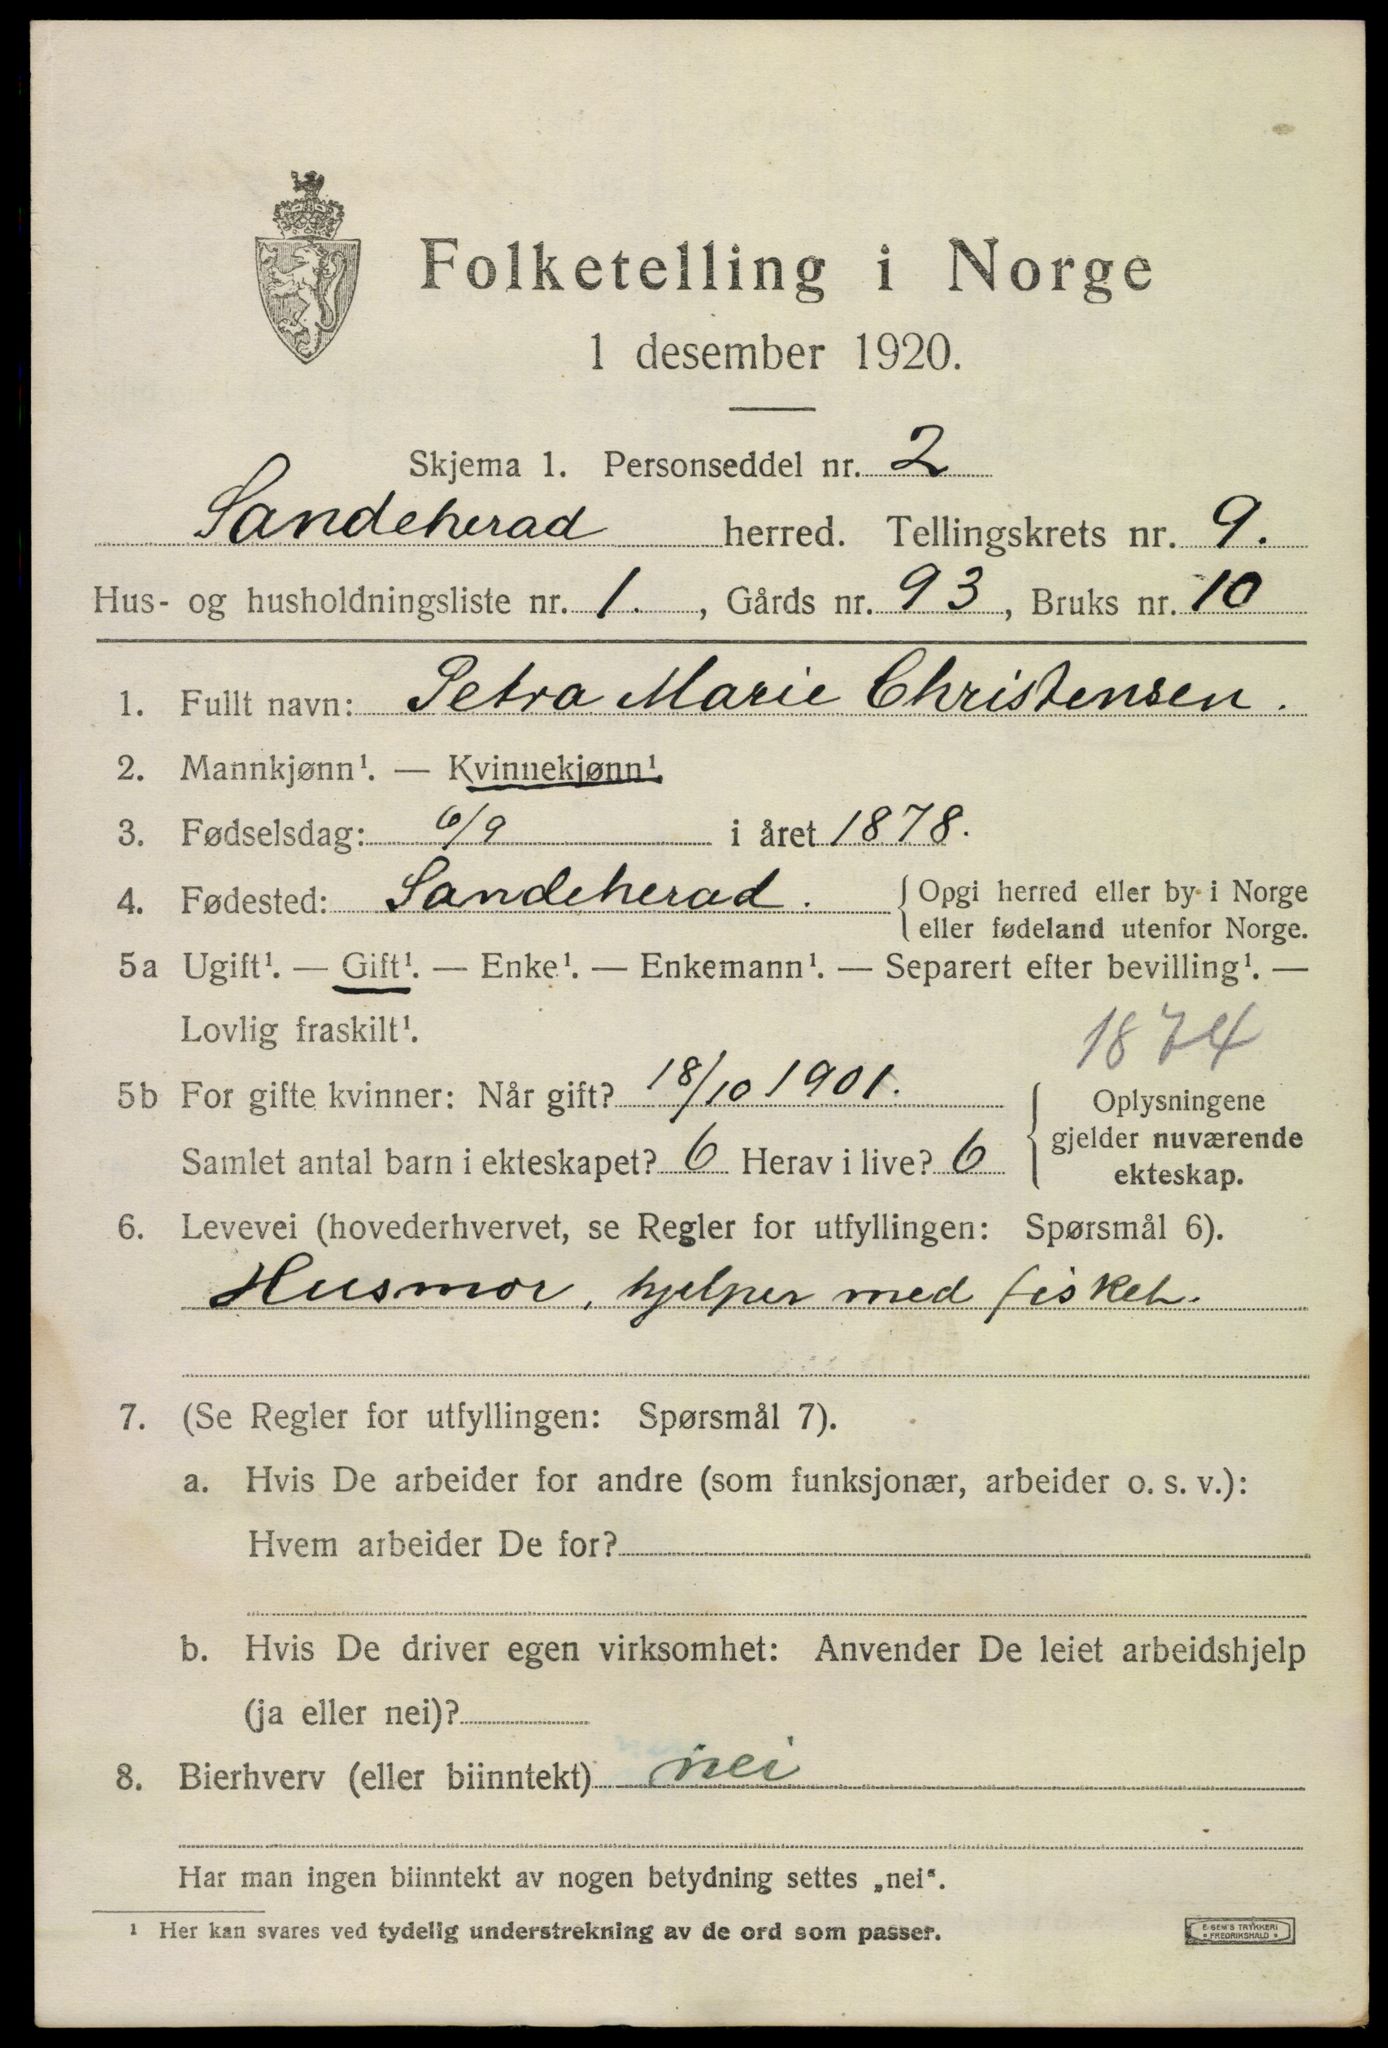 Folketelling i Norge
1 desember 1920.
Skjema 1. Personseddel nr. 2
Sandeherad herred. Tellingskrets nr. 9.
Hus- og husholdningsliste nr. 1., Gårds nr. 93, Bruks nr. 10
1. Fullt navn: Petra Marie Christensen.
2. Mannkjønn¹. — Kvinnekjønn¹.
3. Fødselsdag: 6/9 i året 1878.
4. Fødested: Sandeherad. { Opgi herred eller by i Norge
eller fødeland utenfor Norge.
5a Ugift¹. — Gift¹. — Enke¹. — Enkemann¹. — Separert efter bevilling¹. —
Lovlig fraskilt¹.
1874
5b For gifte kvinner: Når gift? 18/10 1901.
Samlet antal barn i ekteskapet? 6 Herav i live? 6
Oplysningene
gjelder nuværende
ekteskap.
6. Levevei (hovederhvervet, se Regler for utfyllingen: Spørsmål 6).
Husmor, hjelper med fisket.
7. (Se Regler for utfyllingen: Spørsmål 7).
a. Hvis De arbeider for andre (som funksjonær, arbeider o. s. v.):
Hvem arbeider De for?
b. Hvis De driver egen virksomhet: Anvender De leiet arbeidshjelp
(ja eller nei)?
8. Bierhverv (eller biinntekt) nei
Har man ingen biinntekt av nogen betydning settes „nei“.
¹ Her kan svares ved tydelig understrekning av de ord som passer.
E. SEM'S TRYKKERI
* FREDRIKSHALD *